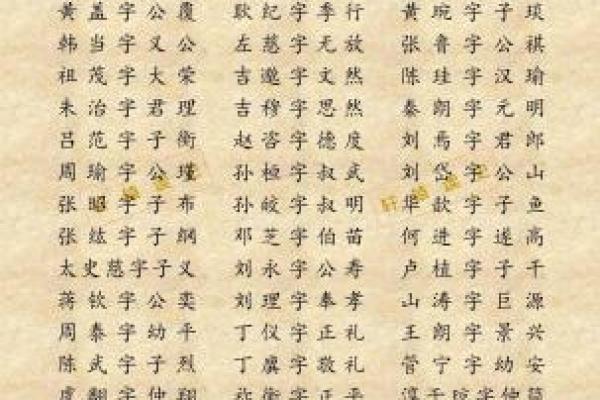 黄盖字公覆 耿纪字季行 黄琬字子琰
韩当字义公 左慈字元放 张鲁字公祺
祖茂字大荣 吉邈字文然 陈珪字汉瑜
朱治字君理 吉穆字思然 秦朗字元明
吕范字子衡 赵咨字德度 刘焉字君郎
周瑜字公瑾 孙桓字叔武 刘岱字公山
张昭字子布 孙皎字叔明 华歆字子鱼
张纮字子纲 邓芝字伯苗 何进字遂高
太史慈字子义 刘永字公寿 卢植字子干
蒋钦字公奕 刘理字奉孝 山涛字巨源
周泰字幼平 丁仪字正礼 王朗字景兴
陈武字子烈 丁廙字敬礼 管宁字幼安
虞翻字仲翔 祢衡字正平 淳于琼字仲简